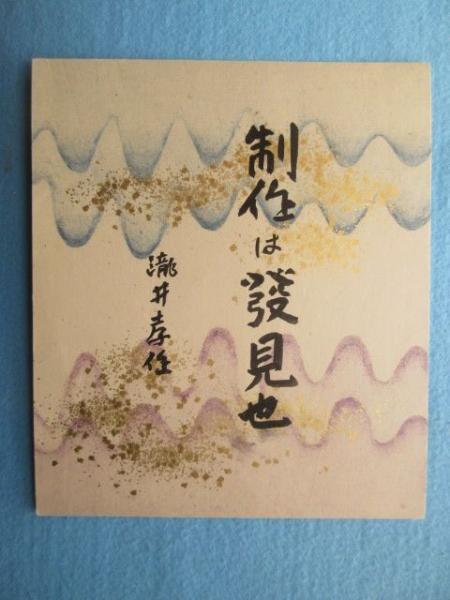 制作は發見也
瀧井孝作